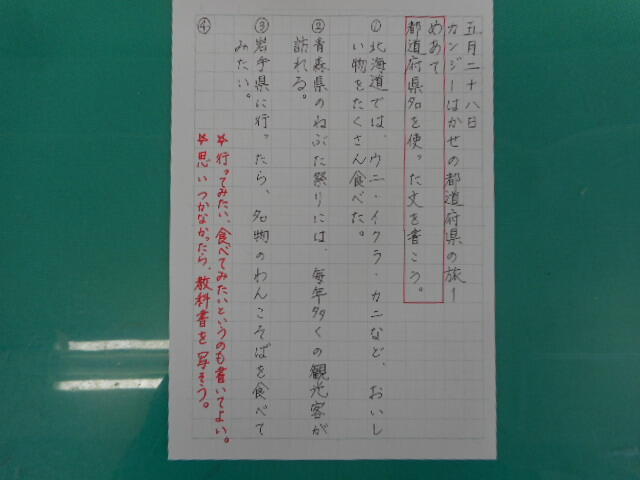 五月二十八日
カンジーはかせの都道府県の旅1
めあて
都道府県名を使った文を書こう。
① 北海道では、ウニ・イクラ・カニなど、おいし
い物をたくさん食べた。
② 青森県のねぶた祭りには、毎年多くの観光客が
訪れる。
③ 岩手県に行ったら、名物のわんこそばを食べて
みたい。
④
☆行ってみたい、食べてみたいというのも書いてよい。
☆思いつかなかったら、教科書を写そう。